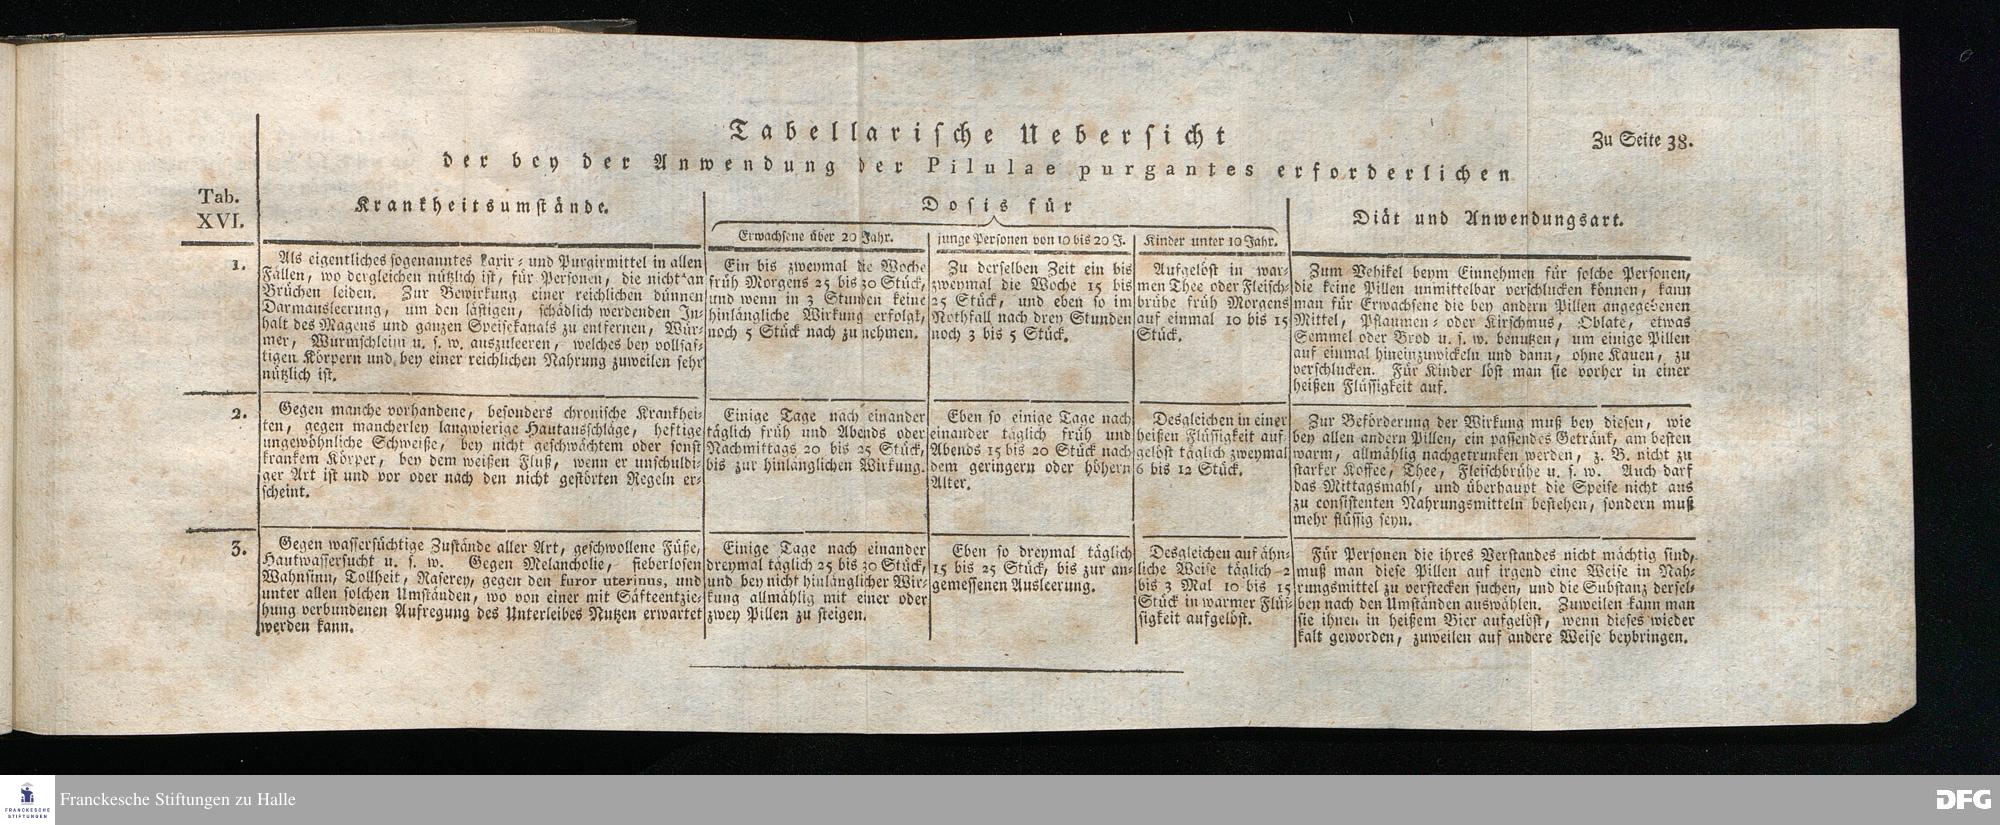 Tabellarische Uebersicht
Zu Seite 38.
der bey der Anwendung der Pilulae purgantes erforderlichen
Tab.
XVI.
Krankheitsumstände.
Dosis für
Diät und Anwendungsart.
Erwachsene über 20 Jahr.
junge Personen von 10 bis 20 J.
Kinder unter 10 Jahr.
1.
Als eigentliches sogenanntes Laxir- und Purgirmittel in allen
Fällen, wo dergleichen nützlich ist, für Personen, die nicht an
Brüchen leiden. Zur Bewirkung einer reichlichen dünnen
Darmausleerung, um den lästigen, schädlich werdenden In-
halt des Magens und ganzen Speisekanals zu entfernen, Wür-
mer, Wurmschleim u. s. w. auszuleeren, welches bey vollsaf-
tigen Körpern und bey einer reichlichen Nahrung zuweilen sehr
nützlich ist.
Ein bis zweymal die Woche
früh Morgens 25 bis 30 Stück,
und wenn in 3 Stunden keine
hinlängliche Wirkung erfolgt,
noch 5 Stück nach zu nehmen.
Zu derselben Zeit ein bis
zweymal die Woche 15 bis
25 Stück, und eben so im
Nothfall nach drey Stunden
noch 3 bis 5 Stück.
Aufgelöst in war-
men Thee oder Fleisch-
brühe früh Morgens
auf einmal 10 bis 15
Stück.
Zum Vehikel beym Einnehmen für solche Personen,
die keine Pillen unmittelbar verschlucken können, kann
man für Erwachsene die bey andern Pillen angegebenen
Mittel, Pflaumen- oder Kirschmus, Oblate, etwas
Semmel oder Brod u. s. w. benutzen, um einige Pillen
auf einmal hineinzuwickeln und dann, ohne Kauen, zu
verschlucken. Für Kinder löst man sie vorher in einer
heißen Flüssigkeit auf.
2.
Gegen manche vorhandene, besonders chronische Krankhei-
ten, gegen mancherley langwierige Hautausschläge, heftige
ungewöhnliche Schweiße, bey nicht geschwächtem oder sonst
krankem Körper, bey dem weißen Fluß, wenn er unschuldi-
ger Art ist und vor oder nach den nicht gestörten Regeln er-
scheint.
Einige Tage nach einander
täglich früh und Abends oder
Nachmittags 20 bis 25 Stück,
bis zur hinlänglichen Wirkung.
Eben so einige Tage nach
einander täglich früh und
Abends 15 bis 20 Stück nach
dem geringern oder höhern
Alter.
Desgleichen in einer
heißen Flüssigkeit auf-
gelöst täglich zweymal
6 bis 12 Stück.
Zur Beförderung der Wirkung muß bey diesen, wie
bey allen andern Pillen, ein passendes Getränk, am besten
warm, allmählig nachgetrunken werden, z. B. nicht zu
starker Koffee, Thee, Fleischbrühe u. s. w. Auch darf
das Mittagsmahl, und überhaupt die Speise nicht aus
zu consistenten Nahrungsmitteln bestehen, sondern muß
mehr flüssig seyn.
3.
Gegen wassersüchtige Zustände aller Art, geschwollene Füße,
Hautwassersucht u. s. w. Gegen Melancholie, fieberlosen
Wahnsinn, Tollheit, Raserey, gegen den furor uterinus, und
unter allen solchen Umständen, wo von einer mit Säfteentzie-
hung verbundenen Aufregung des Unterleibes Nutzen erwartet
werden kann.
Einige Tage nach einander
dreymal täglich 25 bis 30 Stück,
und bey nicht hinlänglicher Wir-
kung allmählig mit einer oder
zwey Pillen zu steigen.
Eben so dreymal täglich
15 bis 25 Stück, bis zur an-
gemessenen Ausleerung.
Desgleichen auf ähn-
liche Weise täglich 2
bis 3 Mal 10 bis 15
Stück in warmer Flüs-
sigkeit aufgelöst.
Für Personen die ihres Verstandes nicht mächtig sind,
muß man diese Pillen auf irgend eine Weise in Nah-
rungsmittel zu verstecken suchen, und die Substanz dersel-
ben nach den Umständen auswählen. Zuweilen kann man
sie ihnen in heißem Bier aufgelöst, wenn dieses wieder
kalt geworden, zuweilen auf andere Weise beybringen.
FRANCKESCHE
STIFTUNGEN
Franckesche Stiftungen zu Halle
DFG